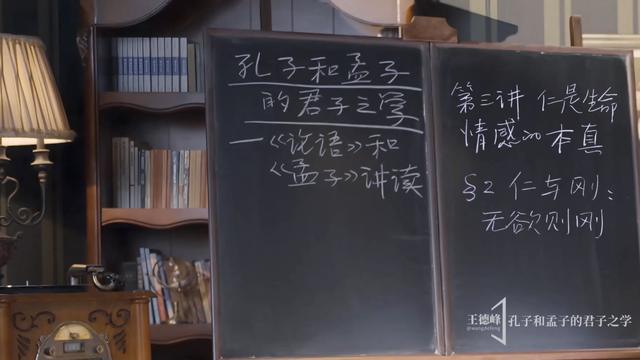 孔子和孟子
的君子之学
—《论语》和
《孟子》讲读
第三讲 仁是生命
情感的本真
§2 仁与刚:
无欲则刚
王德峰
@wangdefeng
孔子和孟子的君子之学